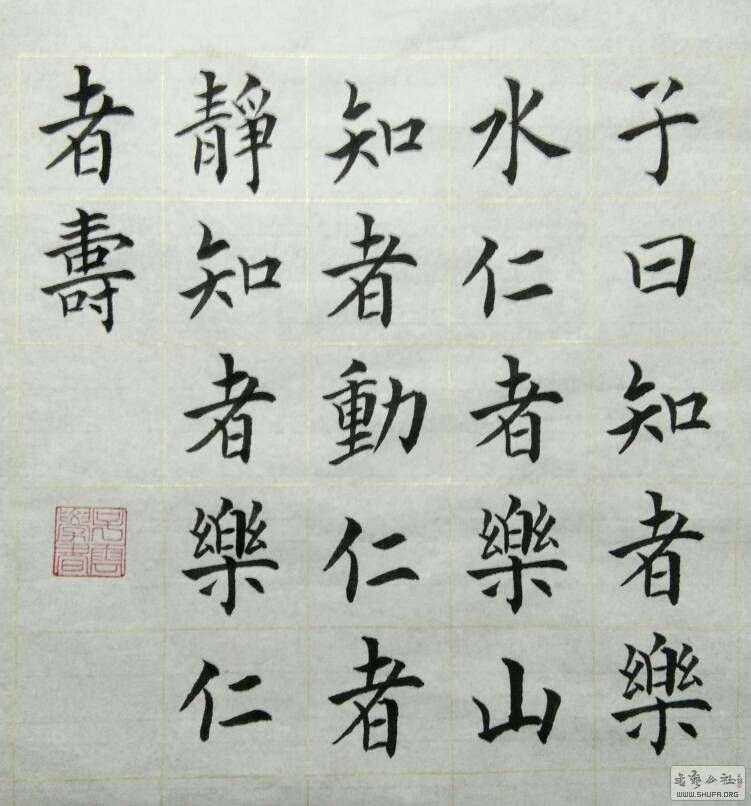 子曰知者樂
水仁者樂山
知者動仁者
靜知者樂仁
者壽
WWW.SHUFA.ORG